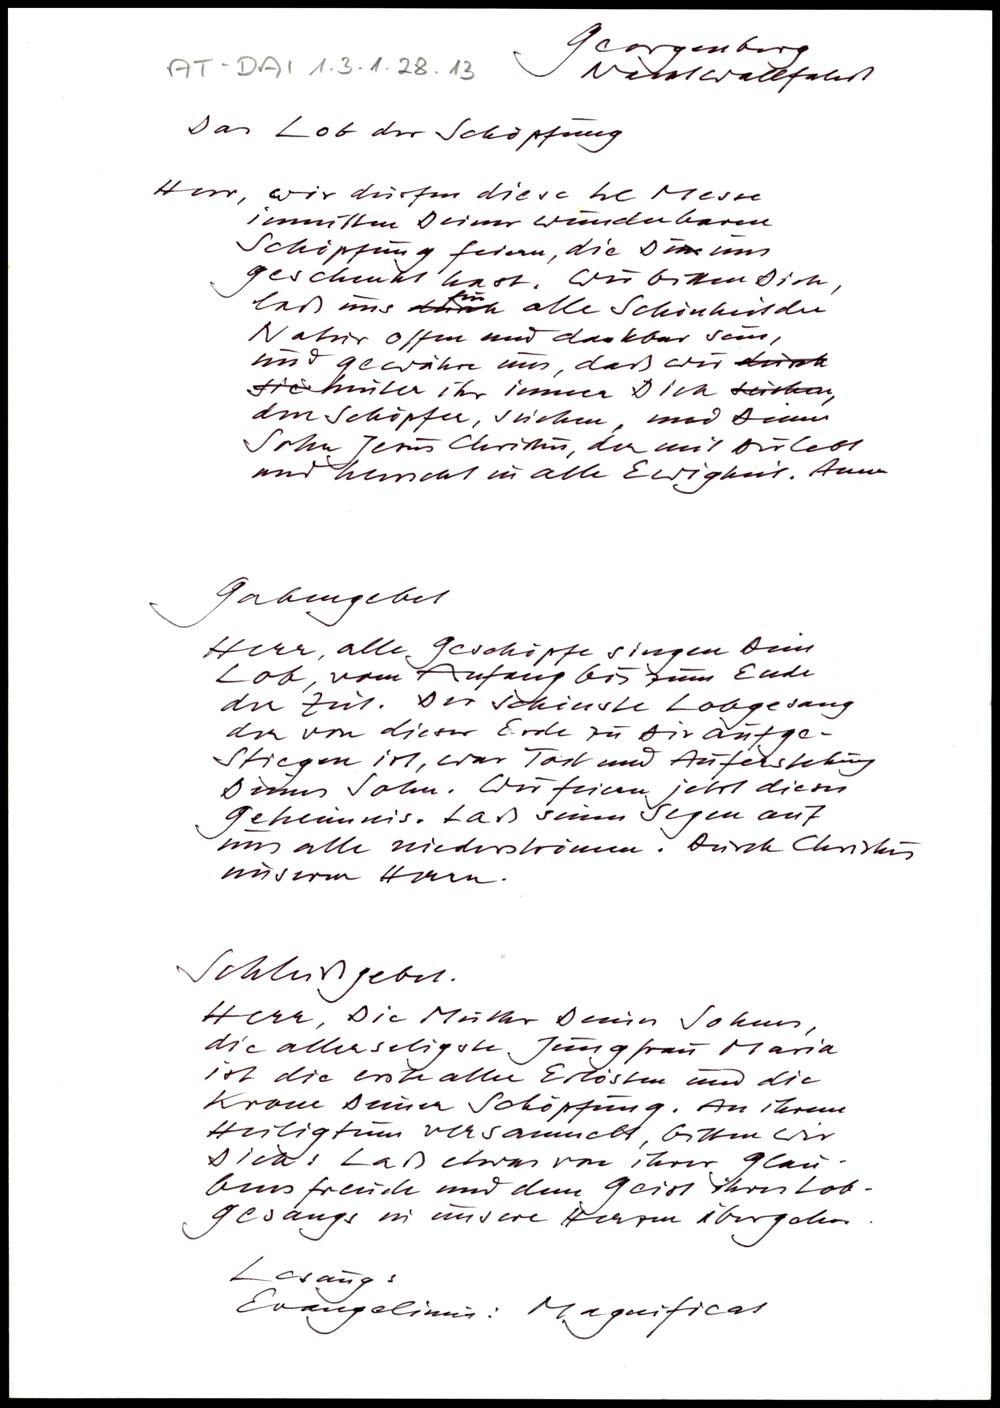 AT-DAI 1.3.1.28.13
Georgenberg
Nachtwallfahrt
Das Lob der Schöpfung
Herr, wir dürfen diese hl Messe
inmitten Deiner wunderbaren
Schöpfung feiern, die Du uns
geschenkt hast. Wir bitten Dich,
laß uns durch für alle Schönheit der
Natur offen und dankbar sein,
und gewähre uns, daß wir durch
sie hinter ihr immer Dich suchen,
den Schöpfer, suchen, und Deinen
Sohn Jesus Christus, der mit Dir lebt
und herrscht in alle Ewigkeit. Amen
Gabengebet
Herr, alle Geschöpfe singen Dein
Lob, vom Anfang bis zum Ende
der Zeit. Der schönste Lobgesang
der von dieser Erde zu Dir aufge-
stiegen ist, war Tod und Auferstehung
Deines Sohn. Wir feiern jetzt dieses
Geheimnis. Laß seinen Segen auf
uns alle niederströmen. Durch Christus
unseren Herrn.
Schlußgebet.
Herr, Die Mutter Deines Sohnes,
die allerseligste Jungfrau Maria
ist die erste aller Erlösten und die
Krone Deiner Schöpfung. An ihrem
Heiligtum versammelt, bitten wir
Dich: Laß etwas von ihrer Glau-
bensfreude und dem Geist ihres Lob-
gesangs in unsere Herzen übergehen.
Lesung:
Evangelium: Magnificat